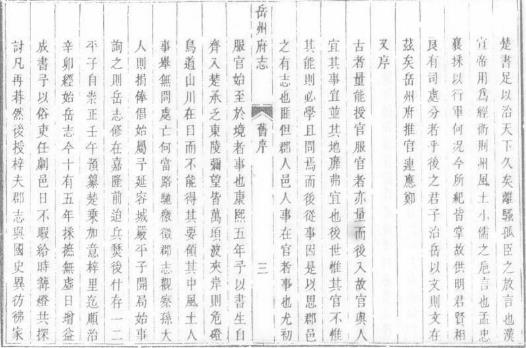 楚書足以治天下久矣離騷孤臣之放言也漢
宣帝用爲經術荆州風土小儒之卮言也孟忠
襄採以行軍何况今所紀皆掌故供明君賢相
良有司處分者乎後之君子治岳以文則文在
茲矣岳州府推官連應鄭
又序
古者量能授官服官者亦量而後入故官與人
宜其事宜並其地靡弗宜也後世惟其官不惟
其能則必學且問焉而後從事因是以思郡邑
之有志也匪但郡人邑人事在官者事也尤初
岳州府志
舊序
三
服官始至於境者事也康熙五年予以書生自
齊入楚承乏東陵彌望皆萬頃波來岸則危磴
鳥道山川在目而不能得其要領其中風土人
事舉無問處亡何當路馳檄徵郡志觀察孫大
人則捐俸倡始屬予延容城嚴平子開局始事
詢之則岳志修在嘉隆前迫兵燹後什存一二
平子自崇正壬午預纂楚乘加意梓里迄順治
辛卯經始岳志今十有五年採摭無虛日增益
成書予以俗吏任劇邑日不暇給時篝燈共探
討凡再朞然後授梓夫郡志與國史異彷彿家